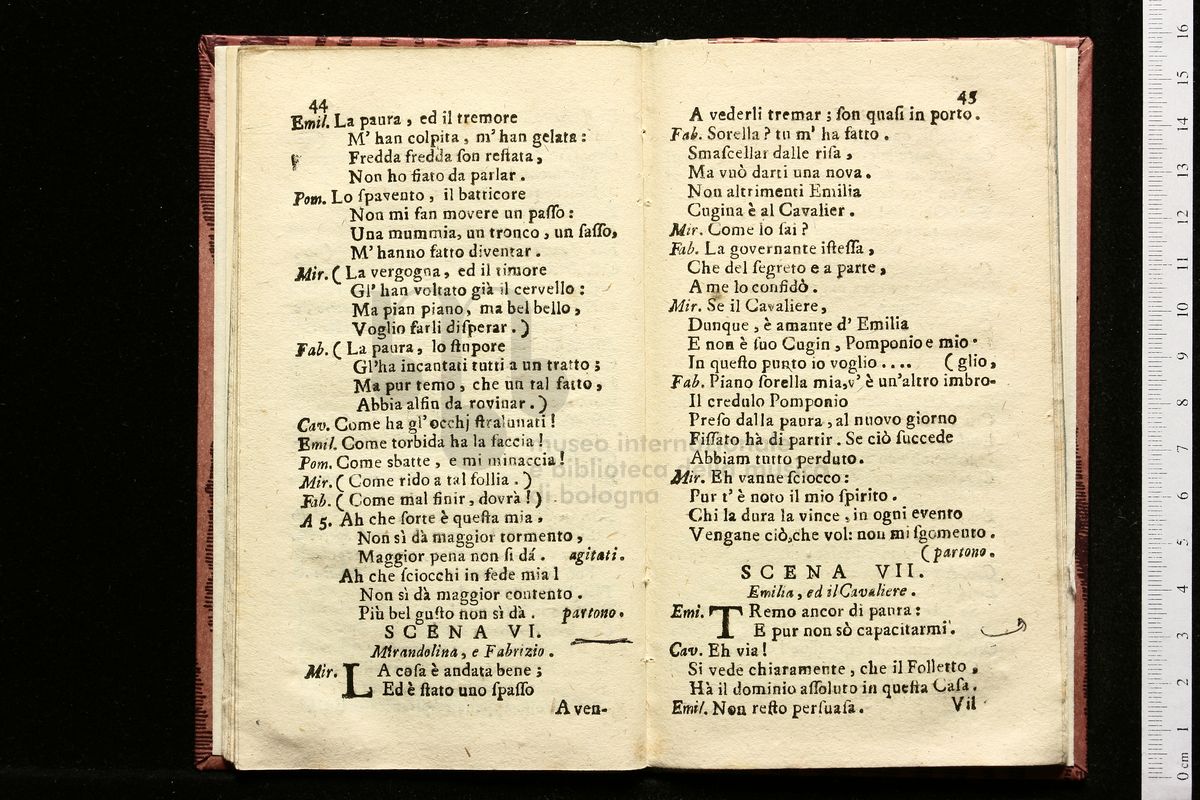 44
Emil. La paura, ed il tremore
M' han colpita, m' han gelata:
Fredda fredda ſon reſtata,
Non ho fiato da parlar.
Pom. Lo ſpavento, il batticore
Non mi fan movere un paſſo:
Una mummia, un tronco, un ſaſſo,
M' hanno fatto diventar.
Mir. ( La vergogna, ed il timore
Gl' han voltato già il cervello:
Ma pian piano, ma bel bello,
Voglio farli diſperar. )
Fab. ( La paura, lo ſtupore
Gl'ha incantati tutti a un tratto;
Ma pur temo, che un tal fatto,
Abbia alfin da rovinar. )
Cav. Come ha gl'occhj ſtralunati!
Emil. Come torbida ha la faccia!
Pom. Come sbatte, e mi minaccia!
Mir. ( Come rido a tal follia. )
Fab. ( Come mal finir, dovrà! )
A 5. Ah che ſorte è queſta mia,
Non sì dà maggior tormento,
Maggior pena non ſi dá. agitati.
Ah che ſciocchi in fede mia l
Non sì dà maggior contento.
Più bel guſto non sì dà. partono.
SCENA VI.
Mirandolina, e Fabrizio.
Mir. LA coſa è andata bene;
Ed è ſtato uno ſpaſſo
A ven-
45
A vederli tremar; ſon quaſi in porto.
Fab. Sorella? tu m' ha fatto.
Smaſcellar dalle riſa,
Ma vuò darti una nova.
Non altrimenti Emilia
Cugina è al Cavalier.
Mir. Come lo ſai?
Fab. La governante iſteſſa,
Che del ſegreto e a parte,
A me lo confidò.
Mir. Se il Cavaliere,
Dunque, è amante d' Emilia
E non è ſuo Cugin, Pomponio e mio
In queſto punto io voglio .... ( glio,
Fab. Piano ſorella mia, v' è un'altro imbro-
Il credulo Pomponio
Preſo dalla paura, al nuovo giorno
Fiſſato hà di partir. Se ciò ſuccede
Abbiam tutto perduto.
Mir. Eh vanne ſciocco:
Pur t' è noto il mio ſpirito.
Chi la dura la vince, in ogni evento
Vengane ciò, che vol: non mi ſgomento.
( partono.
SCENA VII.
Emilia, ed il Cavaliere.
Emi. TRemo ancor di paura:
E pur non sò capacitarmi.
Cav. Eh via!
Si vede chiaramente, che il Folletto,
Hà il dominio aſſoluto in queſta Caſa.
Emil. Non reſto perſuaſa.
Vil
museo internazionale
e biblioteca della musica
di bologna
0 cm 1 2 3 4 5 6 7 8 9 10 11 12 13 14 15 16